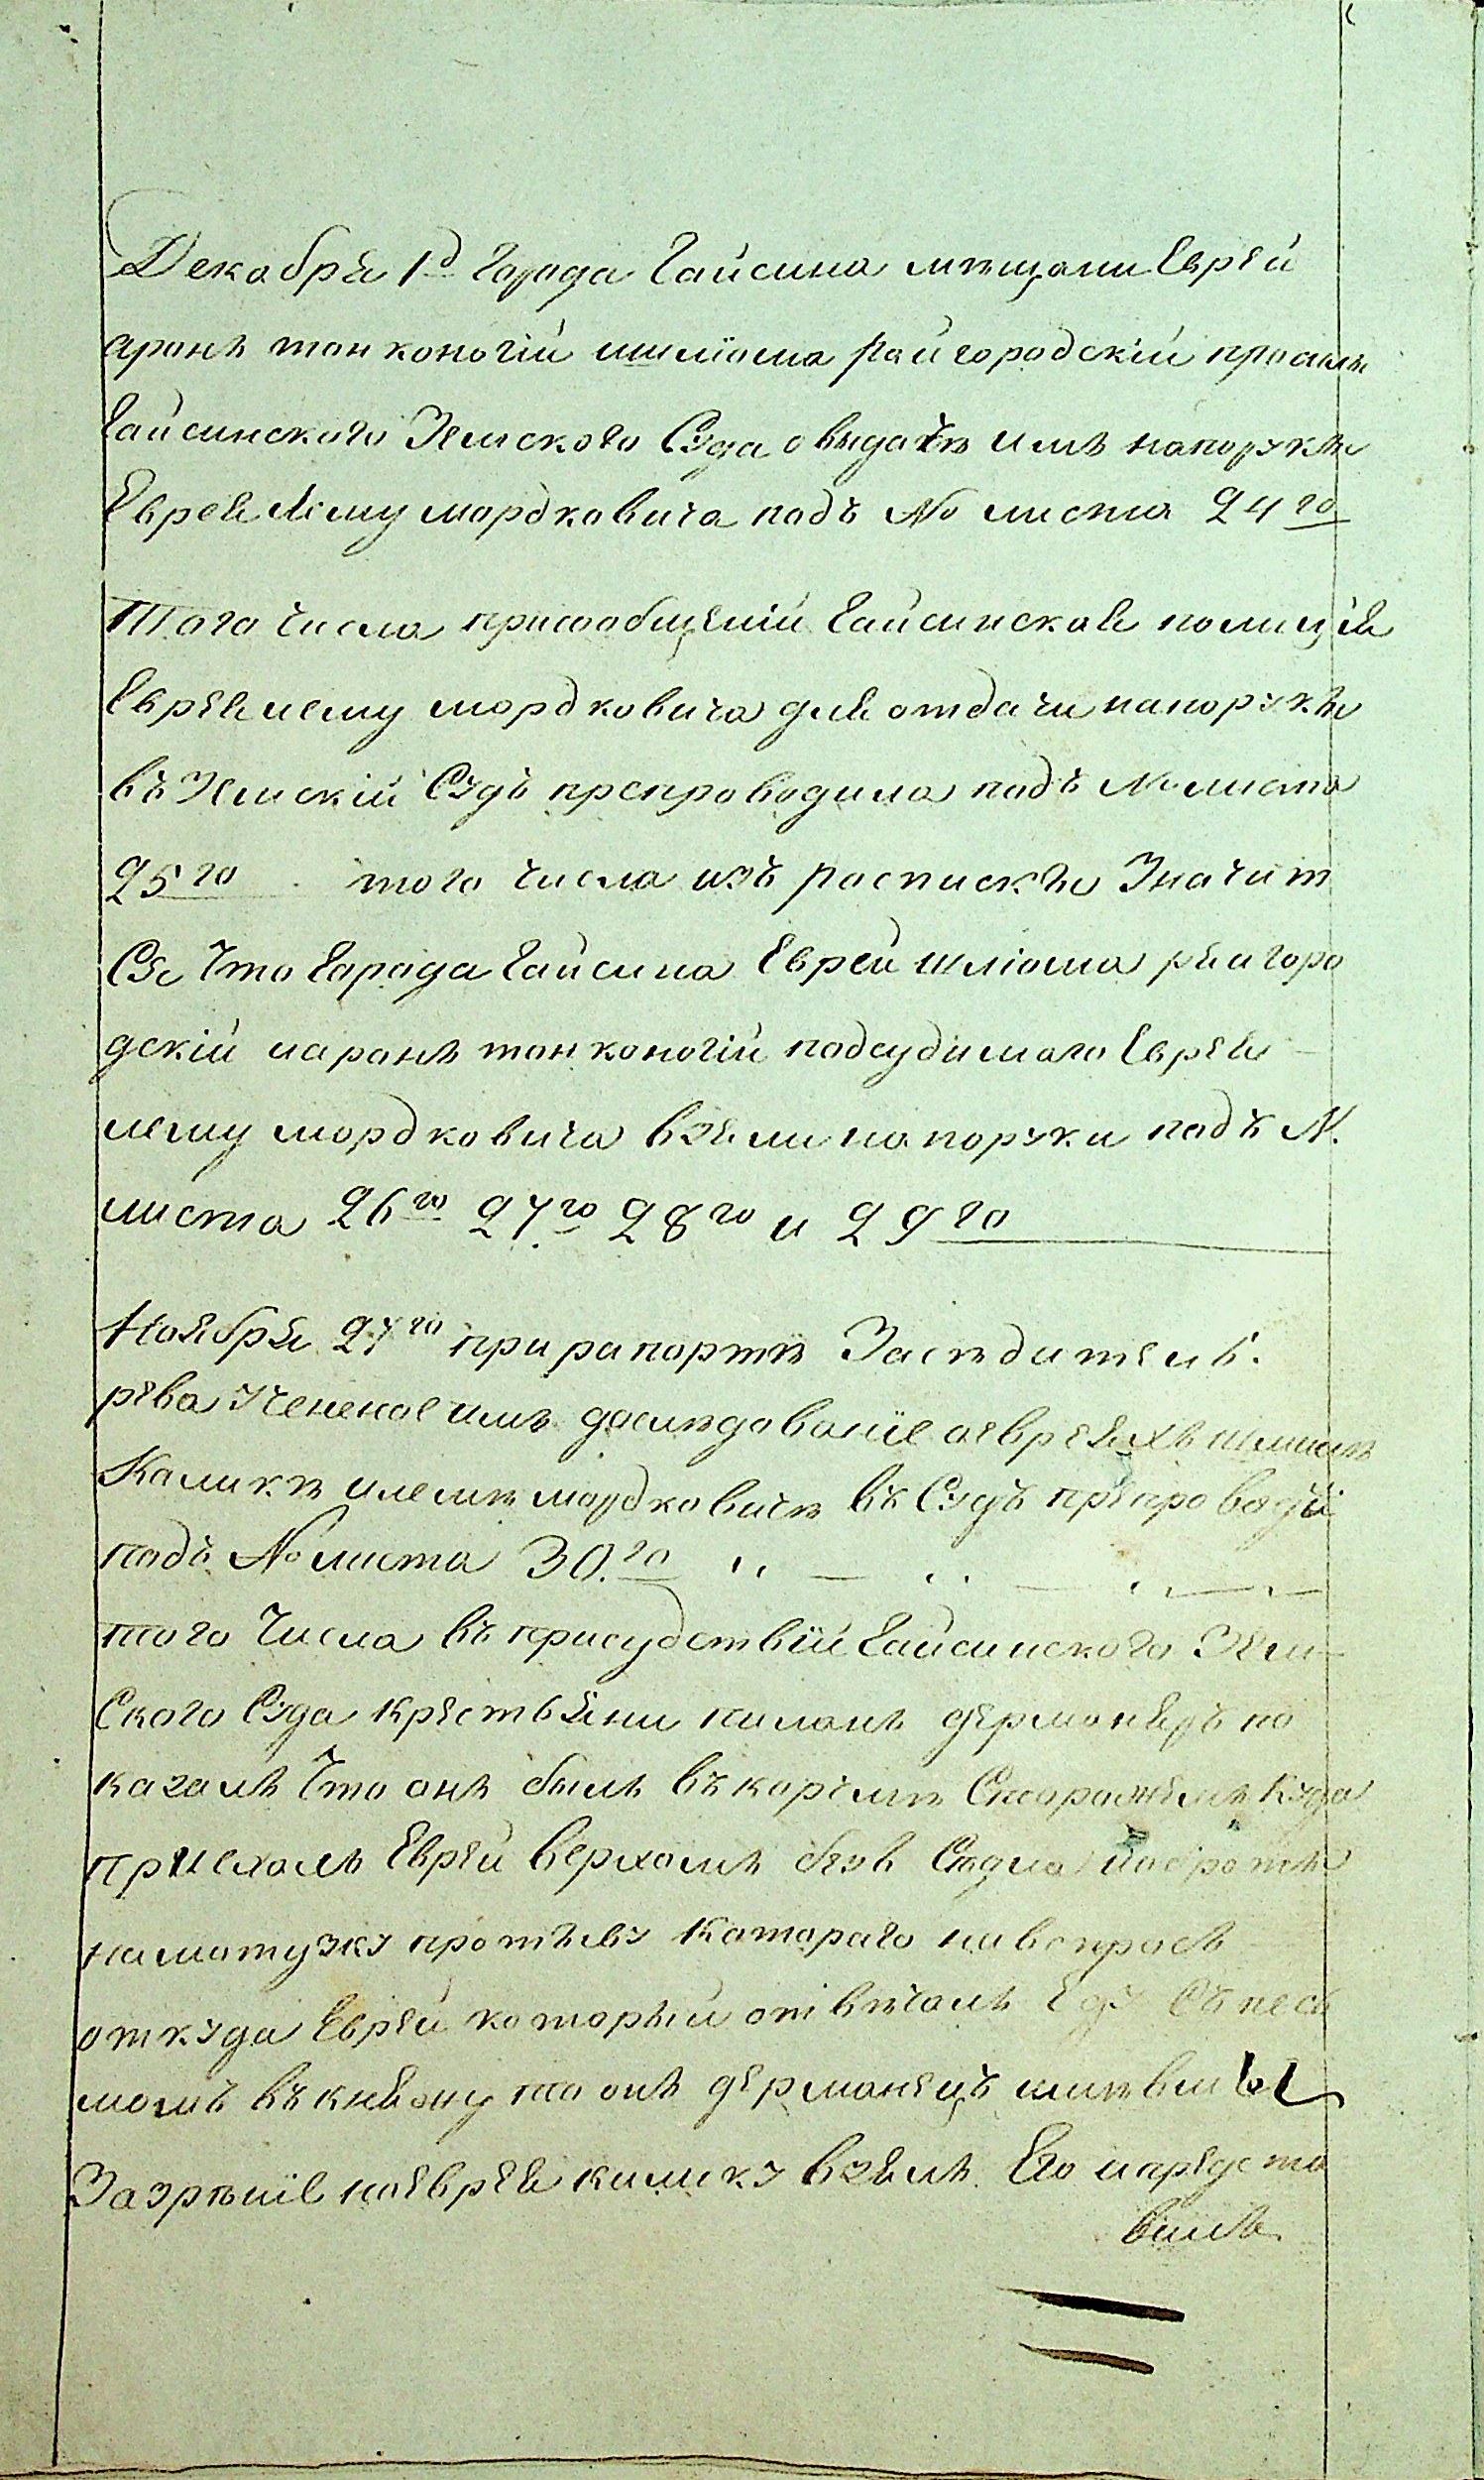 Декабря 1д Города Гайсина мещани Еврей
аронъ тонконогій ишліома Райгородскій просили
Гайсинского Земского Суда о выдаче имъ напоруки
Еврея Лему мордковича подъ № листа 24го
Того Числа присообщеніи Гайсинская полиція
Еврея лему мордковича для отдачи напоруки
въ Земскій Судъ препроводила подъ № листа
25го того Числа изъ расписки Значит
Ся Что Города Гайсина Еврей шліома райгоро
дскій иаронъ тонконогій подсудимаго Еврея
лему мордковича взяли напоруки подъ №.
листа 26го 27.го 28го и 29го
Ноября 27го при рапорте Заседатель
рева Учененое имъ доследованіе оевреяхъ
Калике илеме мордковиче въ Судъ препроводи
подъ № листа 30.го
того Числа въ присудствіи Гайсинского Зем-
Ского Суда крестьяни килокъ дерманецъ по
казалъ Что онъ былъ въ корчме Сторожемъ куда
приехалъ Еврей верхомъ безъ Седла
намотузку противу Котораго навопросъ
откуда Еврей который отвечалъ Еду Съ пись
момъ въ княжу то онъ дерманецъ имевши
Зазреніе наеврея калику взялъ Его ипредста
вилъ